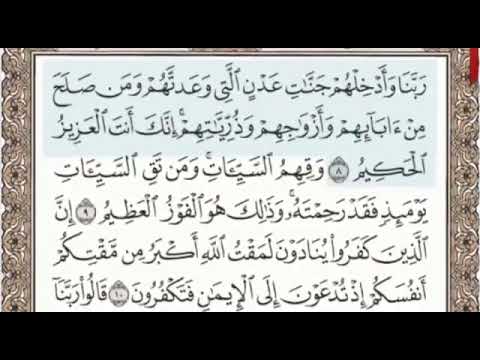 رَبَّنَا وَأَدْخِلْهُمْ جَنَّٰتِ عَدْنٍ ٱلَّتِى وَعَدتَّهُمْ وَمَن صَلَحَ
مِنْ ءَابَآئِهِمْ وَأَزْوَٰجِهِمْ وَذُرِّيَّٰتِهِمْ ۚ إِنَّكَ أَنتَ ٱلْعَزِيزُ
ٱلْحَكِيمُ ٨ وَقِهِمُ ٱلسَّيِّـَٔاتِ ۚ وَمَن تَقِ ٱلسَّيِّـَٔاتِ
يَوْمَئِذٍ فَقَدْ رَحِمْتَهُۥ ۚ وَذَٰلِكَ هُوَ ٱلْفَوْزُ ٱلْعَظِيمُ ٩ إِنَّ
ٱلَّذِينَ كَفَرُوا۟ يُنَادَوْنَ لَمَقْتُ ٱللَّهِ أَكْبَرُ مِن مَّقْتِكُمْ
أَنفُسَكُمْ إِذْ تُدْعَوْنَ إِلَى ٱلْإِيمَٰنِ فَتَكْفُرُونَ ١٠ قَالُوا۟ رَبَّنَآ